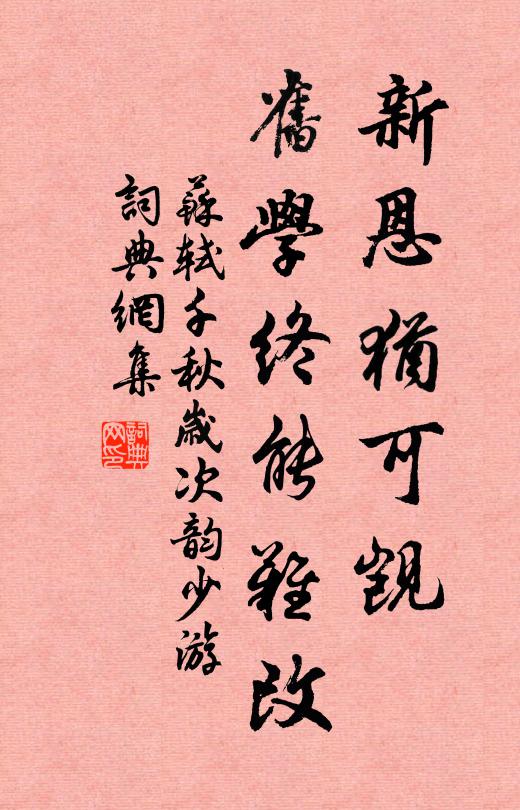 新恩猶可覬
舊學終能難改
蘇軾千秋歲次韵少游
詞典網集
詞典网印